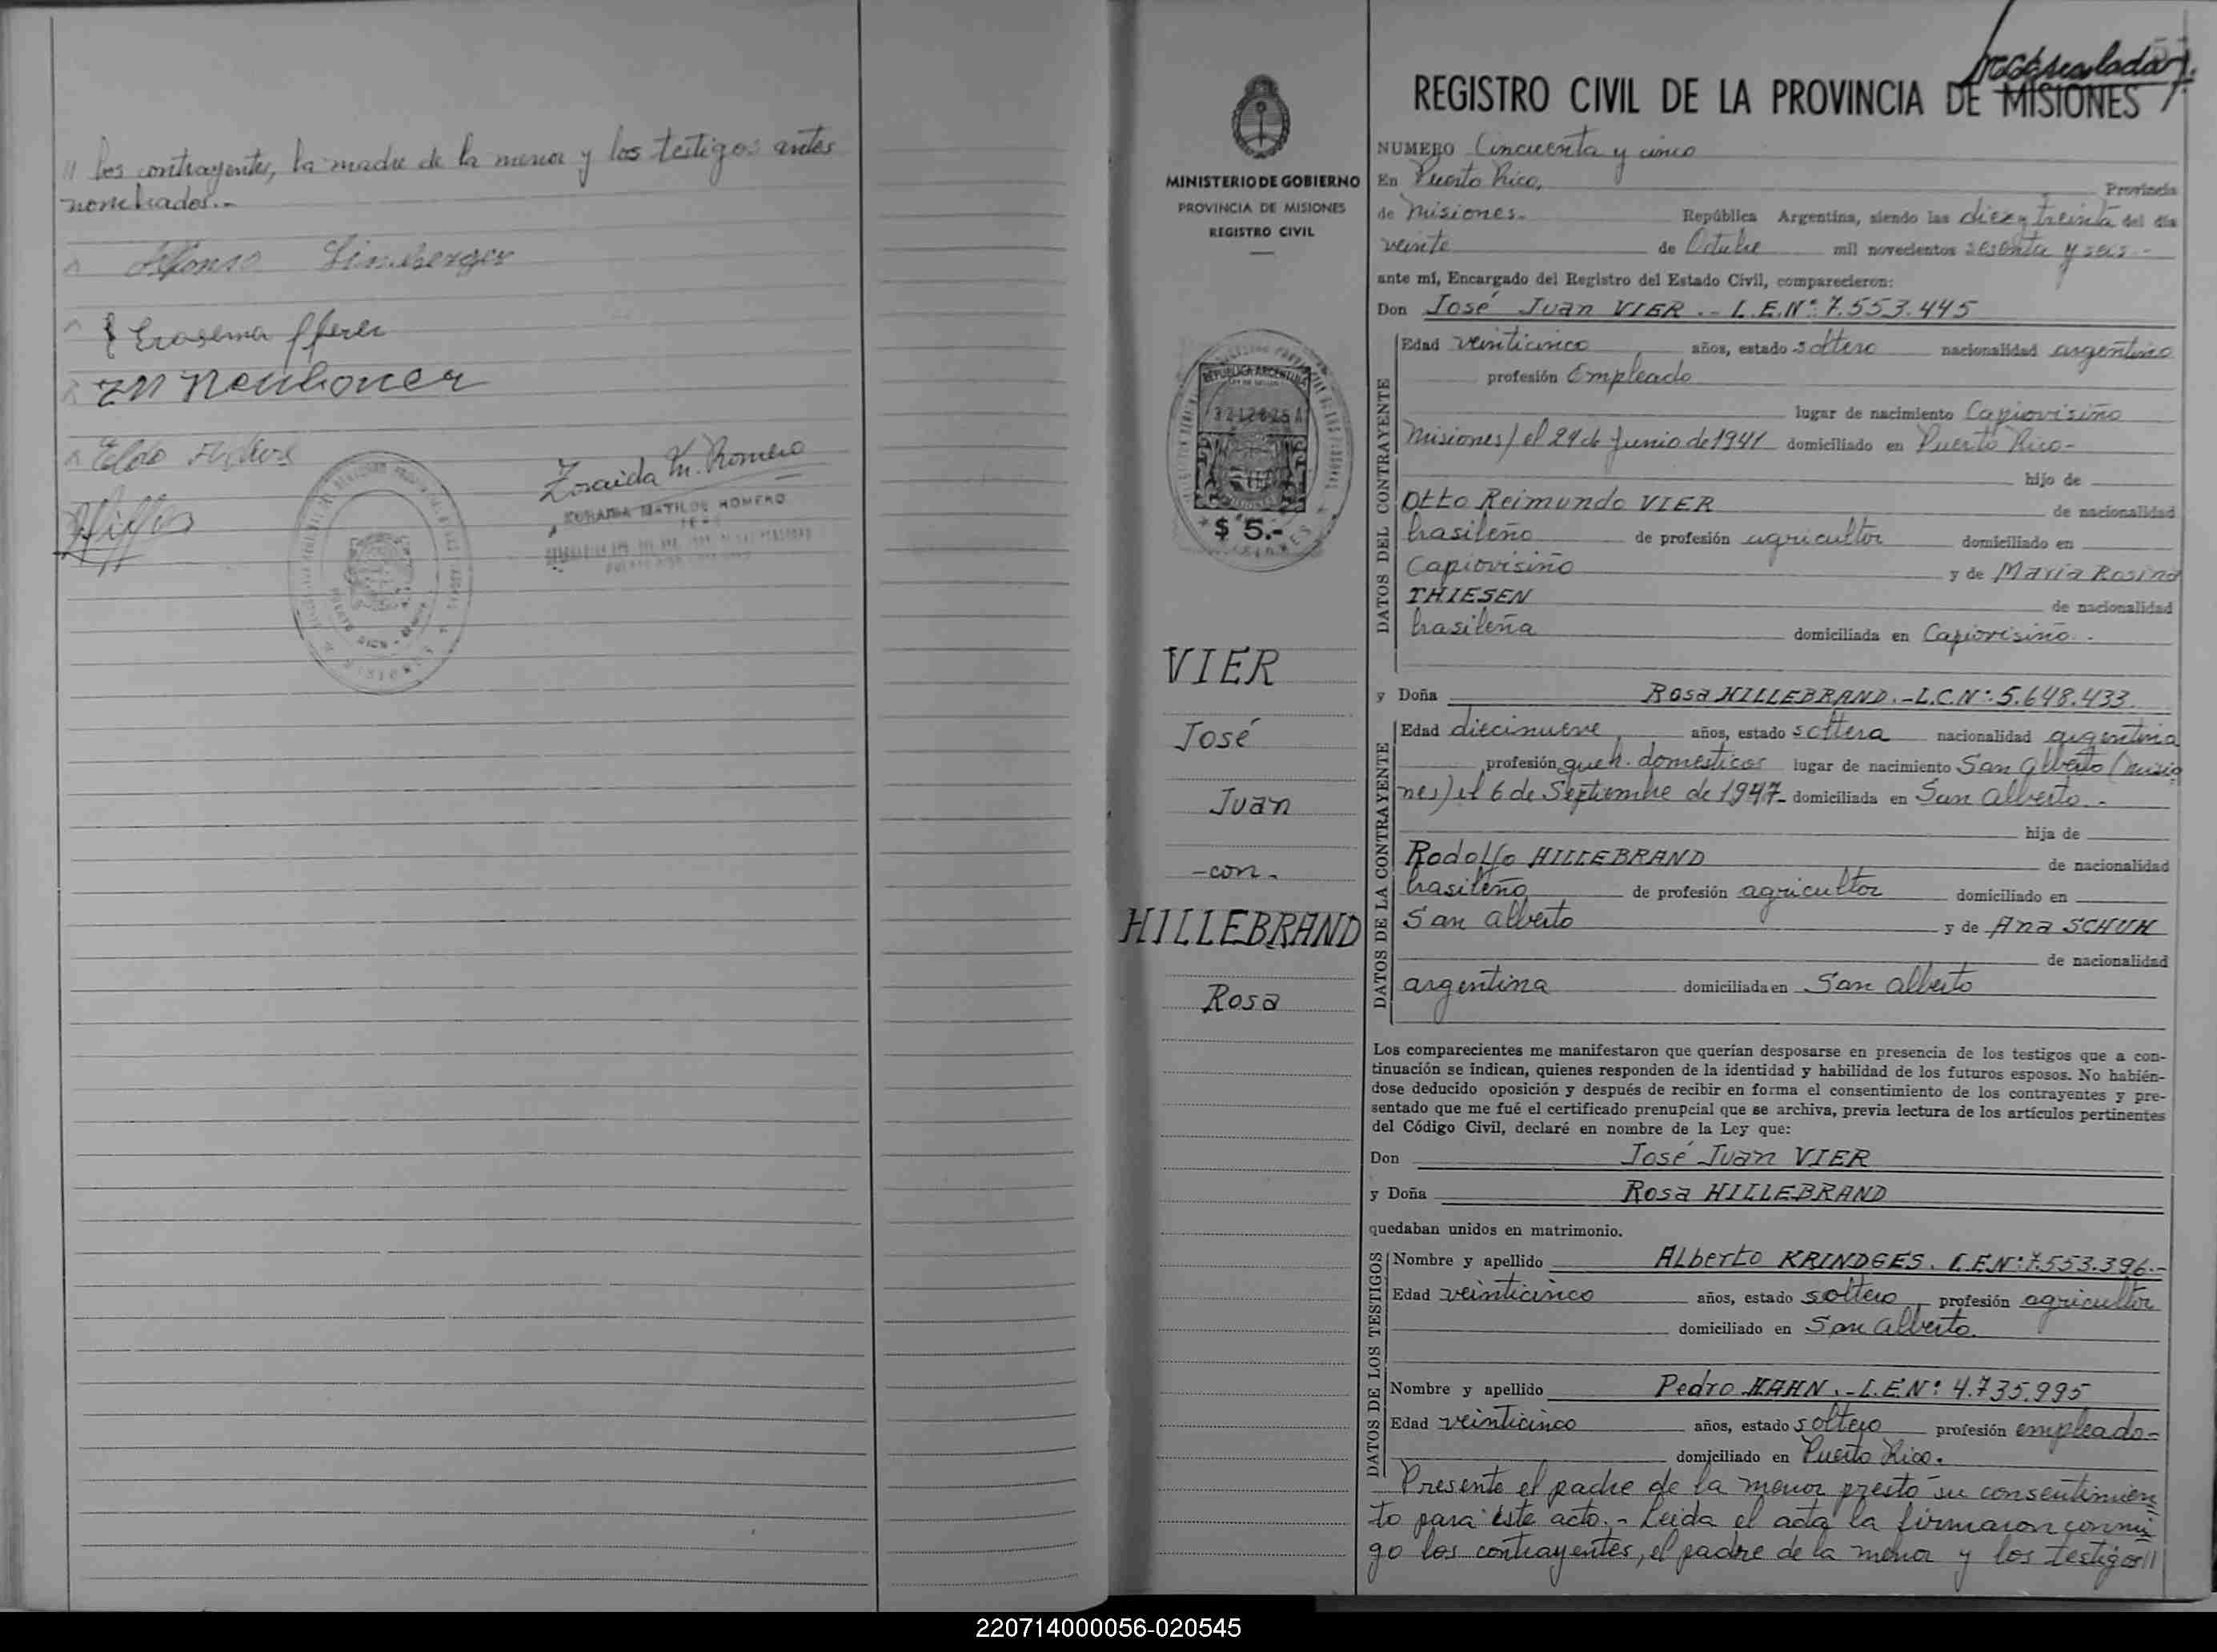 // los contrayentes, la madre de la menor y los testigos antes
nombrados.-
Alfonso
Zoraida M. Romero
ZORAIDA MATILDE ROMERO
MINISTERIO DE GOBIERNO
PROVINCIA DE MISIONES
REGISTRO CIVIL
REPUBLICA ARGENTINA
$ 5.-
VIER
José
Juan
-con-
HILLEBRAND
Rosa
REGISTRO CIVIL DE LA PROVINCIA DE MISIONES
NUMERO Cincuenta y cinco
En Puerto Rico, Provincia
de Misiones.- República Argentina, siendo las diez y treinta del día
veinte de Octubre mil novecientos sesenta y seis.-
ante mí, Encargado del Registro del Estado Civil, comparecieron:
Don José Juan VIER.- L.E.Nº: 7.553.445
DATOS DEL CONTRAYENTE
Edad veinticinco años, estado soltero nacionalidad argentino
profesión Empleado
lugar de nacimiento Capiovisiño
Misiones) el 24 de Junio de 1941 domiciliado en Puerto Rico-
hijo de
Otto Reimundo VIER de nacionalidad
brasileño de profesión agricultor domiciliado en
Capiovisiño y de María Rosina
THIESEN de nacionalidad
brasileña domiciliada en Capiovisiño.-
y Doña Rosa HILLEBRAND.-L.C.Nº: 5.648.433
DATOS DE LA CONTRAYENTE
Edad diecinueve, años, estado soltera nacionalidad argentina
profesión queh. domesticos lugar de nacimiento San Alberto (Misio
nes) el 6 de Septiembre de 1947- domiciliada en San Alberto.-
hija de
Rodolfo HILLEBRAND de nacionalidad
brasileño de profesión agricultor domiciliado en
San Alberto y de Ana SCHUH
de nacionalidad
argentina domiciliada en San Alberto
Los comparecientes me manifestaron que querían desposarse en presencia de los testigos que a con-
tinuación se indican, quienes responden de la identidad y habilidad de los futuros esposos. No habién-
dose deducido oposición y después de recibir en forma el consentimiento de los contrayentes y pre-
sentado que me fué el certificado prenupcial que se archiva, previa lectura de los artículos pertinentes
del Código Civil, declaré en nombre de la Ley que:
Don José Juan VIER
y Doña Rosa HILLEBRAND
quedaban unidos en matrimonio.
DATOS DE LOS TESTIGOS
Nombre y apellido Alberto KRINDGES. L.E.Nº: 7.553.396.-
Edad veinticinco años, estado soltero, profesión agricultor
domiciliado en San Alberto.
Nombre y apellido Pedro HAHN.-L.E.Nº: 4.735.995
Edad veinticinco años, estado soltero profesión empleado-
domiciliado en Puerto Rico.
Presente el padre de la menor prestó su consentimien
to para este acto.- Leida el acta la firmaron conmi
go los contrayentes, el padre de la menor y los testigos//
220714000056-020545